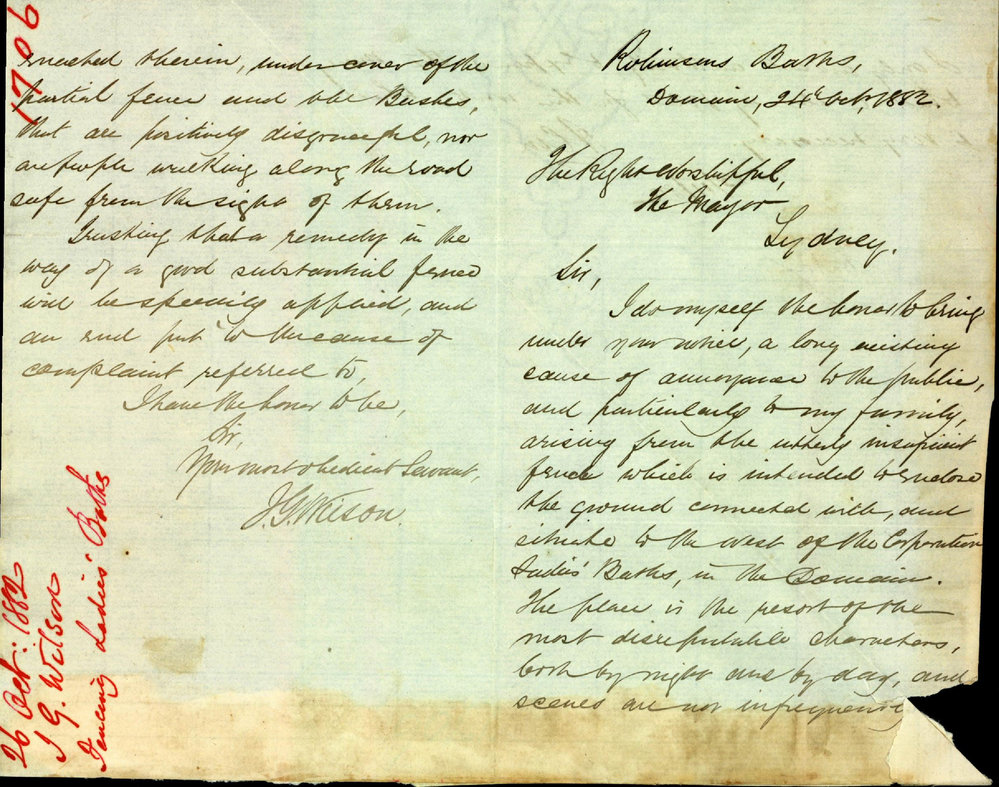 Robinsons Baths,
Domain, 24th Oct, 1882.
The Right Worshipful,
The Mayor
Sydney.
Sir,
I do myself the honor to bring
under your notice, a long existing
cause of annoyance to the public,
and particularly to my family,
arising from the utterly insuficient
fence which is intended to enclose
the ground connected with, and
situate to the west of the Corporation
Ladies' Baths, in the Domain.
The place is the resort of the
most disreputable characters,
both by night and by day, and
scenes are not infrequently
enacted therein, under cover of the
partial fence and the Bushes,
that are positively disgraceful, nor
are people walking along the road
safe from the sight of them.
Trusting that a remedy in the
way of a good substantial fence
will be speedily applied, and
an end put to the cause of
complaint referred to,
I have the honor to be,
Sir,
Your most obedient Servant,
J. G. Wilson.
1706
26 Oct: 1882
J G. Wilson
Fencing Ladies' Baths